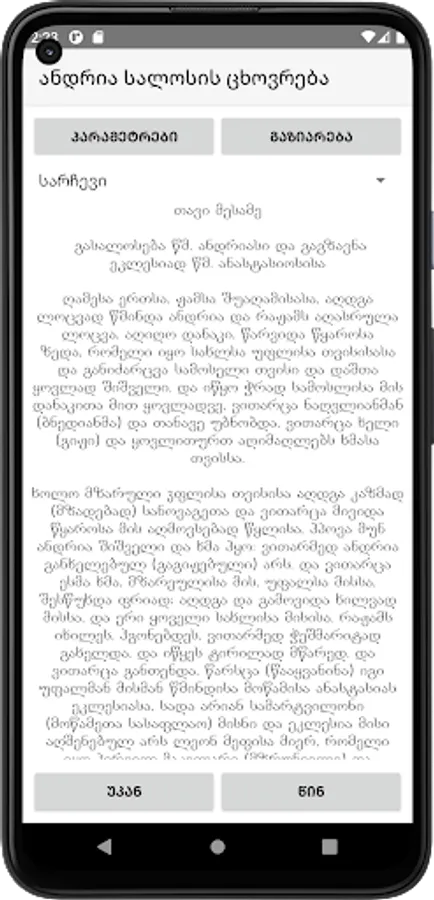 2:23
ანდრია სალოსის ცხოვრება
პარამეტრები
გაზიარება
სარჩევი
თავი მესამე
გასალოსება წმ. ანდრიასი და გაგზავნა
ეკლესიად წმ. ანასტასიოსისა
ღამესა ერთსა, ჟამსა შუაღამისასა, აღდგა
ლოცვად წმინდა ანდრია და რაჟამს აღასრულა
ლოცვა, აღიღო დანაკი, წარვიდა წყაროსა
ზედა, რომელი იყო სახლსა უფლისა თვისისასა
და განიძარცვა სამოსელი თვისი და დაშთა
ყოვლად შიშველი, და იწყო ჭრად სამოსლისა მის
დანაკითა მით ყოვლადვე, ვითარცა ნაღვლიანმან
(ბნედიანმა) და თანავე უბნობდა, ვითარცა ხელი
(გიჟი) და ყოვლითურთ აღიმაღლებს ხმასა
თვისსა.
ხოლო მზარული უფლისა თვისისა აღდგა კაზმად
(მზადებად) სანოვაგეთა და ვითარცა მივიდა
წყაროსა მის აღმოვსებად წყლისა, ჰპოვა მუნ
ანდრია შიშველი და ხმა ჰყო: ვითარმედ ანდრია
განხელებულ (გაგიჟებული) არს. და ვითარცა
ესმა ხმა, მზარეულისა მის, უფალსა მისსა,
შესწუხდა ფრიად; აღდგა და გამოვიდა ხილვად
მისსა, და ერი ყოველი სახლისა მისისა, რაჟამს
იხილეს, ჰგონებდეს, ვითარმედ ჭეშმარიტად
გახელდა, და იწყეს ტირილად მწარედ, და
ვითარცა განთენდა, წარსცა (წააყვანინა) იგი
უფალმან მისმან წმინდისა მოწამისა ანასტასიას
ეკლესიასა, სადა არიან სამარტვილონი
(მოწამეთა სასაფლაო) მისნი და ეკლესია მისი
აღშენებულ არს ლეონ მეფისა მიერ, რომელი
უკან
წინ